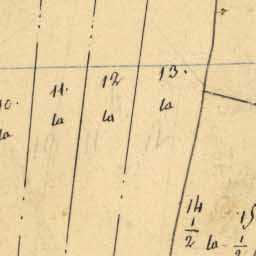 10. 11. 12 13.
la la la la
14 15
1/2 la 1/2